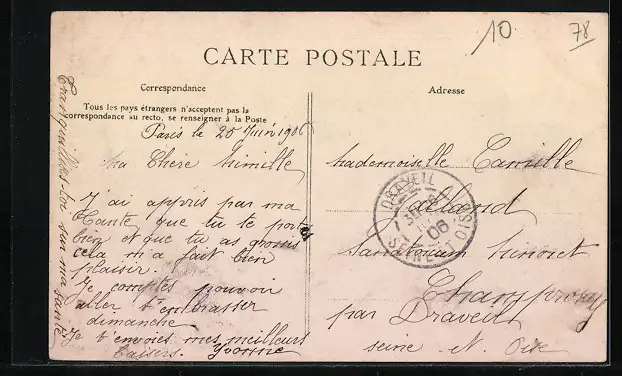 10
78
CARTE POSTALE
Correspondance
Adresse
Tous les pays étrangers n'acceptent pas la
correspondance au recto, se renseigner à la Poste
Paris le 25 Juin 1906
Ma Chère Mimille
J'ai appris par ma
Tante que tu te portes
bien et que tu as grossis
cela m'a fait bien
plaisir.
Je comptes pouvoir
aller t'enbrasser
dimanche
Je t'envoies mes meilleurs
baisers. Yvonne
Tranquillises-toi sur ma santé
Mademoiselle Camille
Sanatorium Minoret
Champrosay
par Draveil
Seine et Oise
DRAVEIL
06
SEINE ET OISE